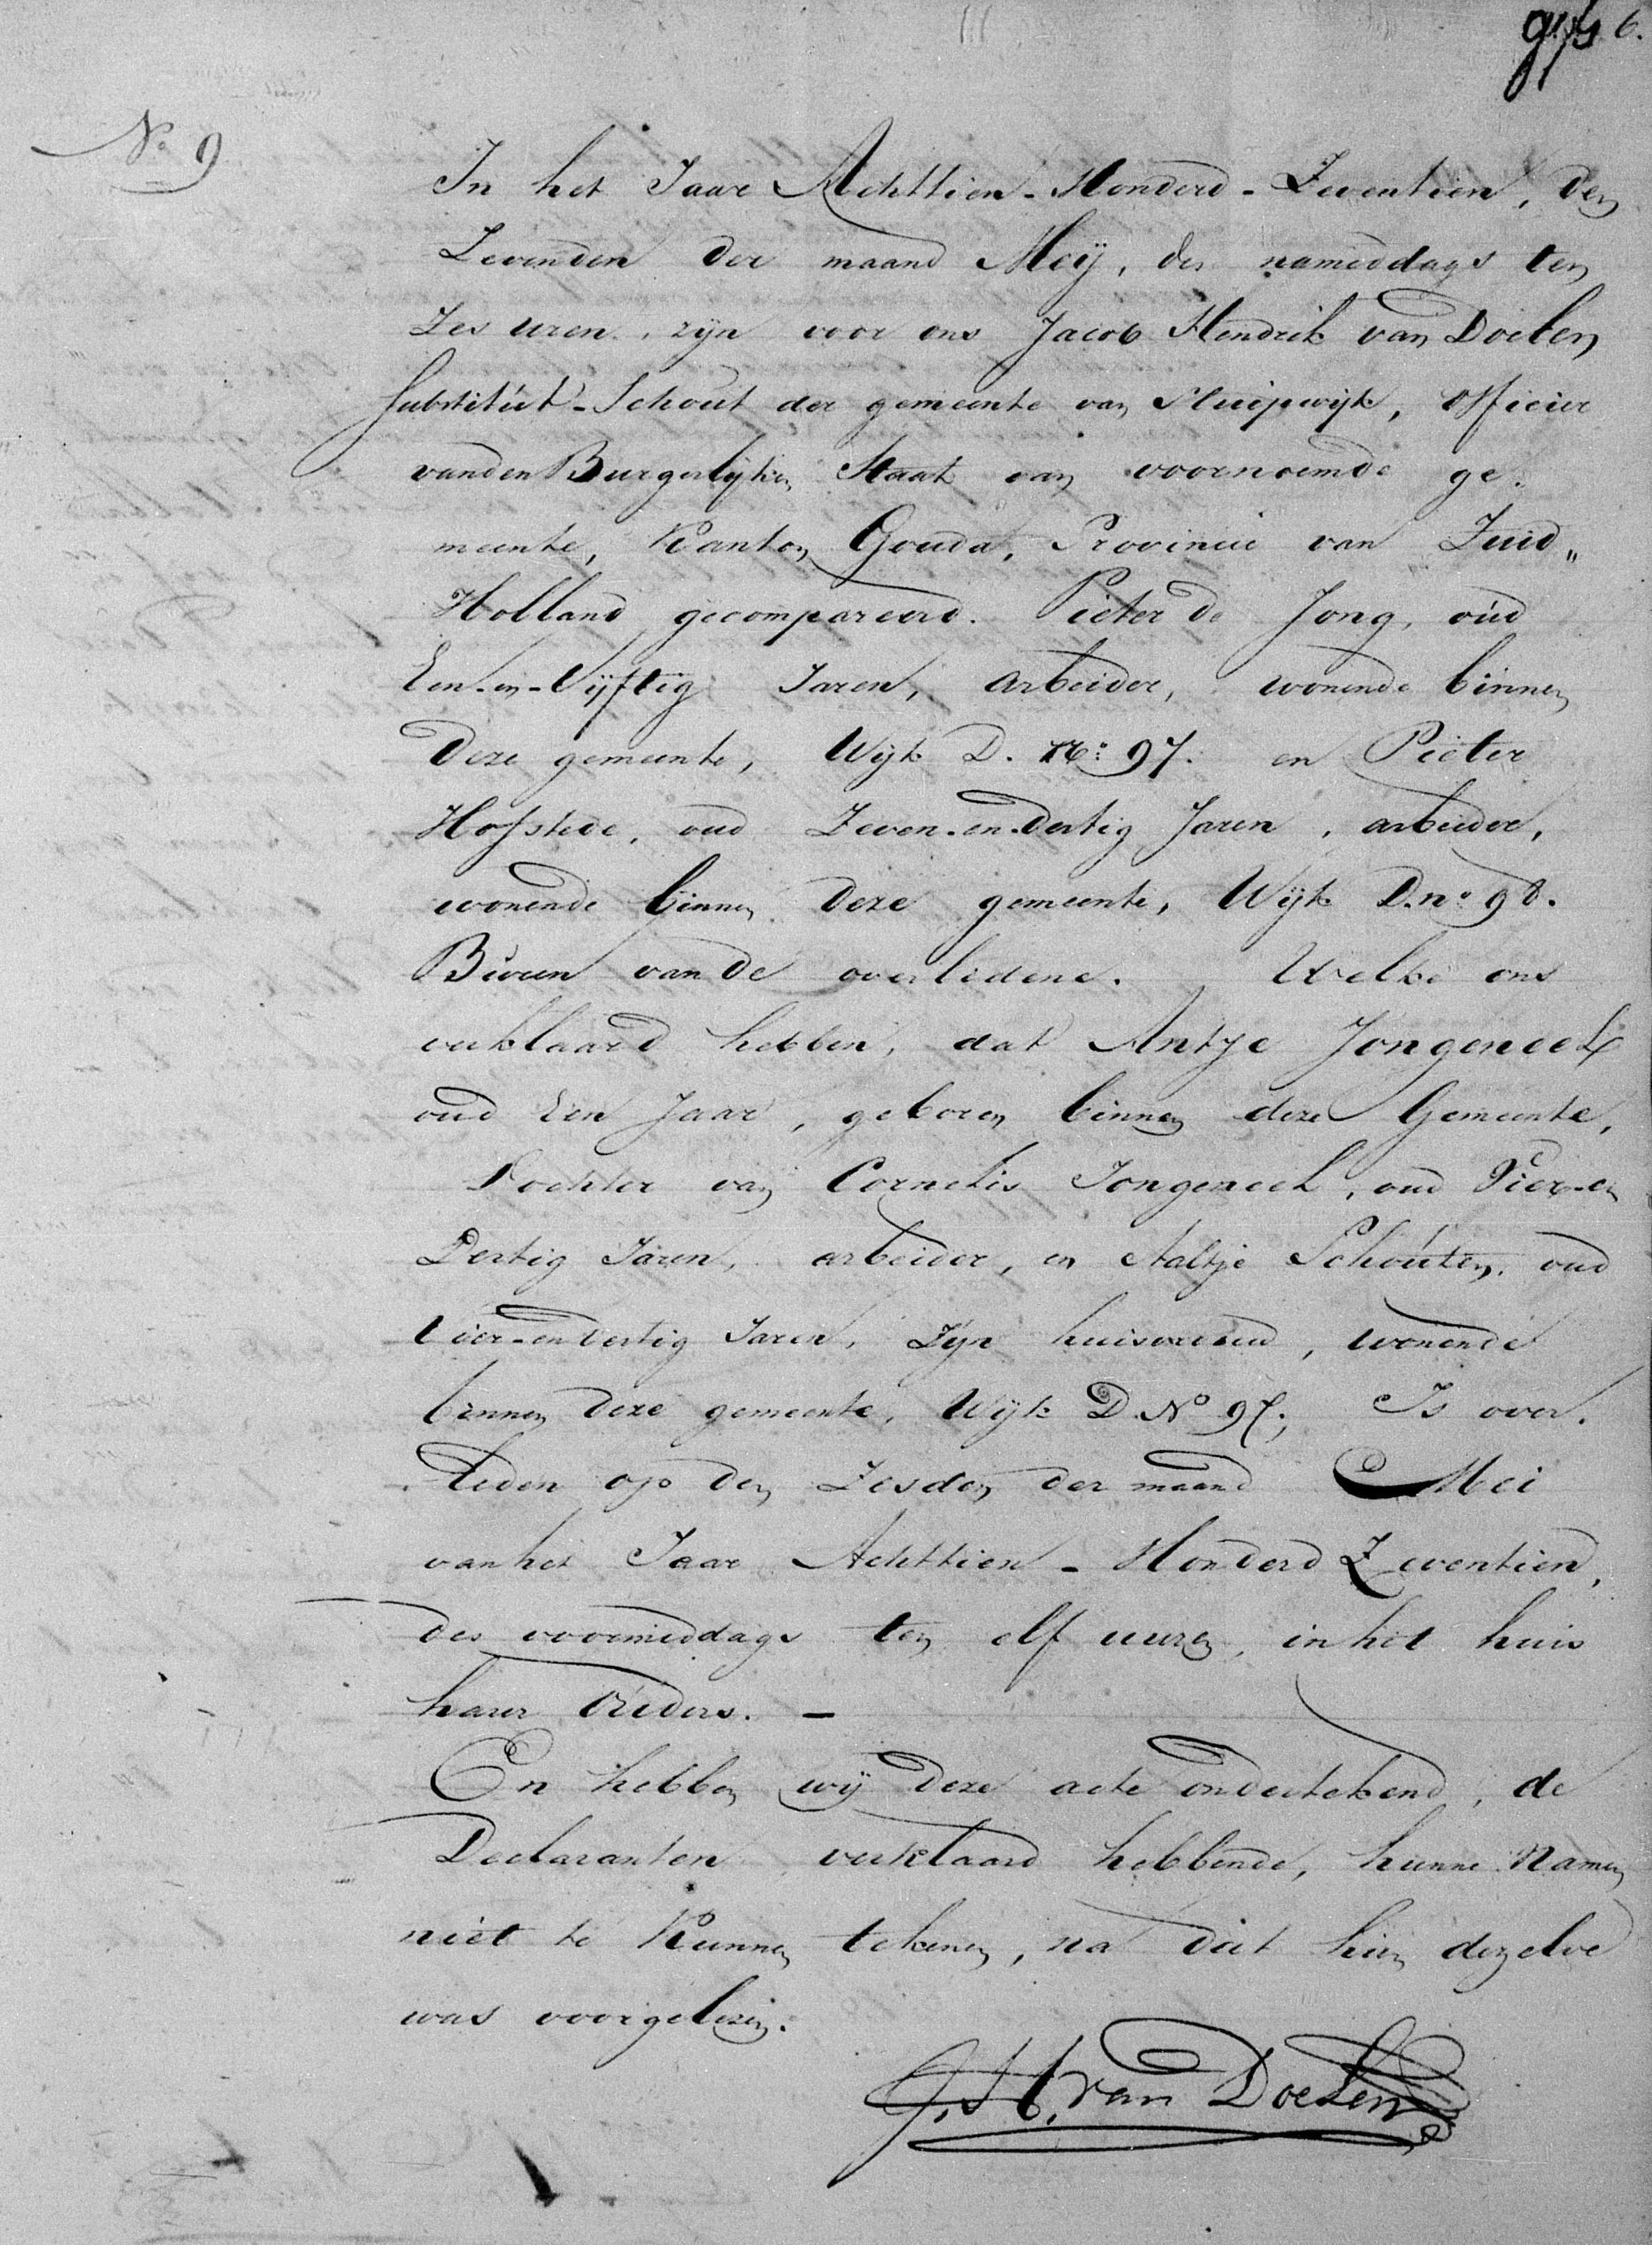 6.
No 9
In het Jaar Achttien-Honderd-Zeventien, den
Zevenden der maand Meÿ, des nameddags ten
Zes uren, zijn voor ons Jacob Hendrik van Doelen
Substitút-Schout der gemeente van Sluipwijk, Officier
vanden Burgerlijken Staat van voornoemde ge-
meente, Kanton Gouda, Provincie van Zuid„
Holland gecompareerd. Pieter de Jong, oúd
Een-en-Vijftig Jaren, arbeider, wonende binnen
deze gemeente, Wijk D. No: 97. en Pieter
Hofstede, oud Zeven-en-dertig Jaren, arbeider,
wonende binnen deze gemeente, Wijk D. no 98.
Búren van de overledene. Welke ons
verklaard hebben, dat Antje Jongeneel
oud Een Jaar, geboren binnen deze Gemeente,
Dochter van Cornelis Jongeneel, oud Vier-en
Dertig Jaren, arbeider, en Aaltje Schoúten, oud
Vier-en dertig Jaren, Zijn huisvrouw, wonende
binnen deze gemeente, Wijk D. No 97; Is over-
leden op den Zesden der maand Mei
van het Jaar Achttien-Honderd Zeventien,
des voormiddags ten elf uuren, in het huis
harer Oúders. —
En hebben wij deze acte ondertekend, de
Declaranten verklaard hebbende, hunne Namen
niet te Kunnen tekenen, na dat hún dezelve
was voorgelezen.
J. H. van Doelen